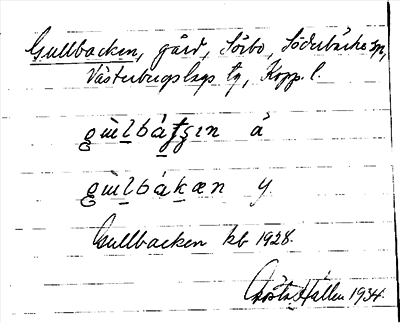 Gullbacken, gård, Sörbo, Söderbärke sn,
Västerbergslags tg, Kopp. l.
gu̇lbát̯s̯ın å
gu̇lbákæn y.
Gullbacken kb 1928.
Gösta Hallén 1934.